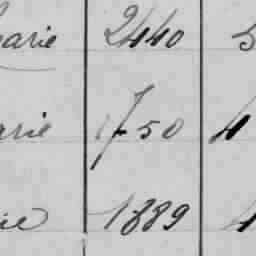 arie 2440 5
arie 1750 4
ie 1889 4